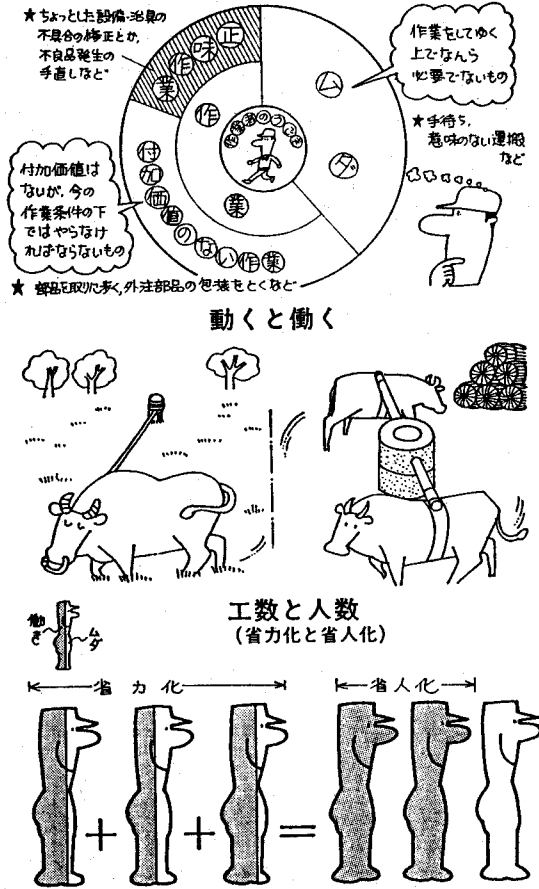 ★ちょっとした設備・治具の
不具合の修正とか、
不良品発生の
手直しなど
正味作業
作業
作業者のうごき
ムダ
作業をしてゆく
上でなんら
必要でないもの
★手待ち、
意味のない運搬
など
付加価値は
ないが、今の
作業条件の下
ではやらなけ
ればならないもの
付加価値のない作業
★部品を取りに歩く、外注部品の包装をとくなど
動くと働く
工数と人数
(省力化と省人化)
働き
ムダ
省力化
省人化
+
+
=